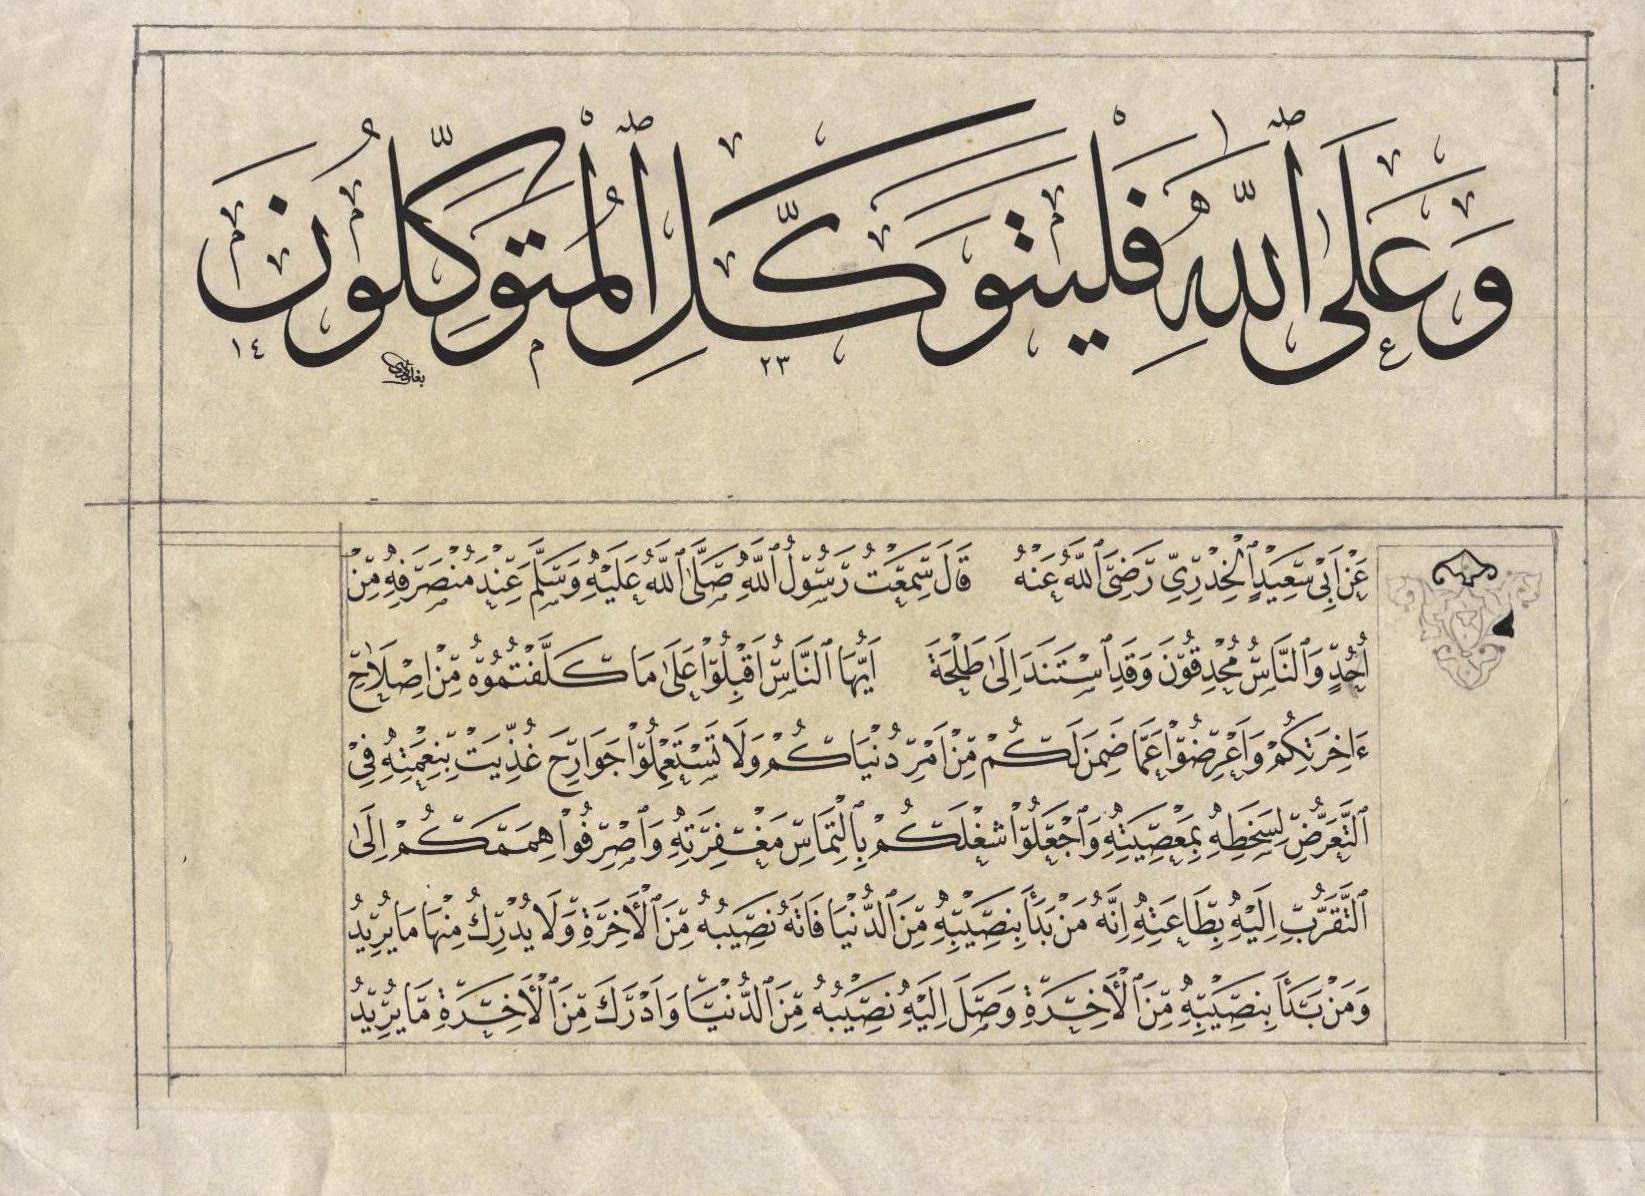 وَعَلَى ٱللَّهِ فَلْيَتَوَكَّلِ ٱلْمُتَوَكِّلُونَ
١٤ ٢٣
عَنْ اَبِىْ سَعِيْدٍ ٱلْخُدْرِىِّ رَضِىَ ٱللَّهُ عَنْهُ قَالَ سَمِعْتُ رَسُوْلَ ٱللَّهِ صَلَّى ٱللَّهُ عَلَيْهِ وَسَلَّمَ عِنْدَ مُنْصَرَفِهِ مِنْ
اُحُدٍ وَٱلنَّاسُ مُحْدِقُوْنَ وَقَدِ ٱسْتَنَدَ اِلَىٰ طَلْحَةَ اَيُّهَا ٱلنَّاسُ اَقْبِلُوْا عَلَىٰ مَا كَلَّفْتُمُوْهُ مِنْ اِصْلَاحِ
ءَاخِرَتِكُمْ وَاَعْرِضُوْا عَمَّا ضَمِنَ لَكُمْ مِنْ اَمْرِ دُنْيَاكُمْ وَلَا تَسْتَعْمِلُوْا جَوَارِحَ غُذِّيَتْ بِنِعْمَتِهِ فِىْ
ٱلتَّعَرُّضِ لِسَخَطِهِ بِمَعْصِيَتِهِ وَٱجْعَلُوْا شُغْلَكُمْ بِٱلْتِمَاسِ مَغْفِرَتِهِ وَٱصْرِفُوْا هِمَمَكُمْ اِلَى
ٱلتَّقَرُّبِ اِلَيْهِ بِطَاعَتِهِ اِنَّهُ مَنْ بَدَأَ بِنَصِيْبِهِ مِنَ ٱلدُّنْيَا فَاتَهُ نَصِيْبُهُ مِنَ ٱلْأٰخِرَةِ وَلَا يُدْرِكُ مِنْهَا مَا يُرِيْدُ
وَمَنْ بَدَأَ بِنَصِيْبِهِ مِنَ ٱلْأٰخِرَةِ وَصَلَ اِلَيْهِ نَصِيْبُهُ مِنَ ٱلدُّنْيَا وَاَدْرَكَ مِنَ ٱلْأٰخِرَةِ مَا يُرِيْدُ